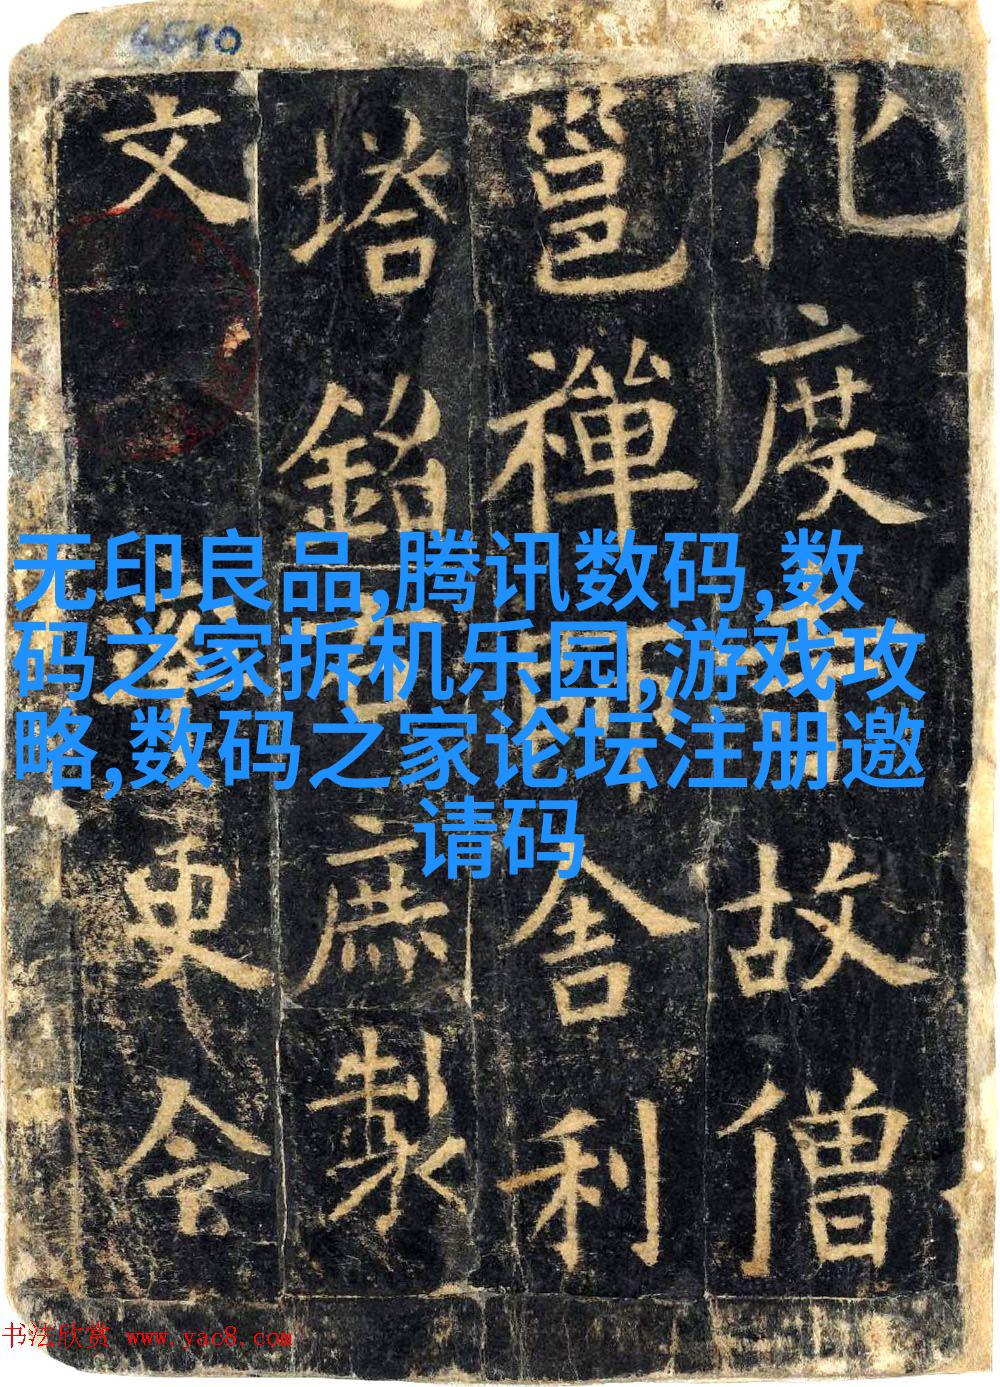 6510
化度故僧
邕禪師舍利
塔銘庶製
文更令
无印良品,腾讯数码,数
码之家拆机乐园,游戏攻
略,数码之家论坛注册邀
请码
书法欣赏 www.yac8.com